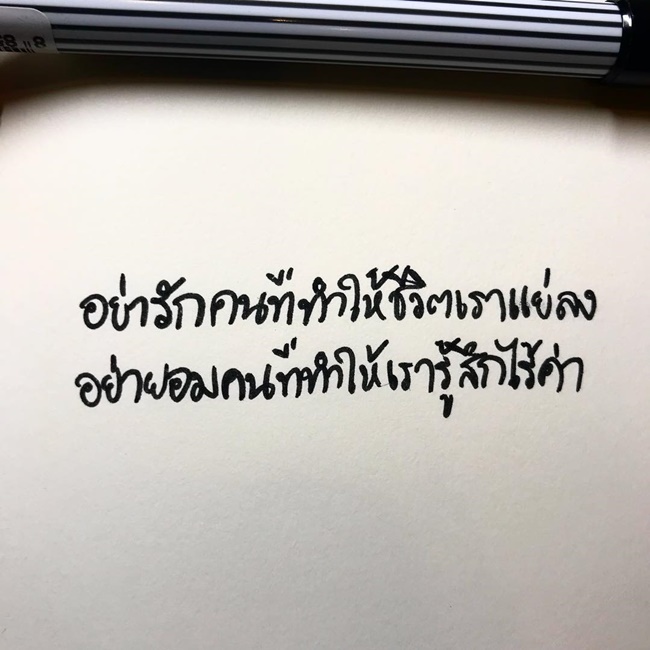 อย่ารักคนที่ทำให้ชีวิตเราแย่ลง
อย่ายอมคนที่ทำให้เรารู้สึกไร้ค่า